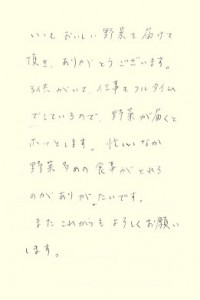 いつもおいしい野菜を届けて
頂き、ありがとうございます。
子供がいて、仕事もフルタイム
でしているので、野菜が届くと
ホッとします。忙しいなか
野菜多めの食事がとれる
のがありがたいです。
またこれからもよろしくお願い
します。